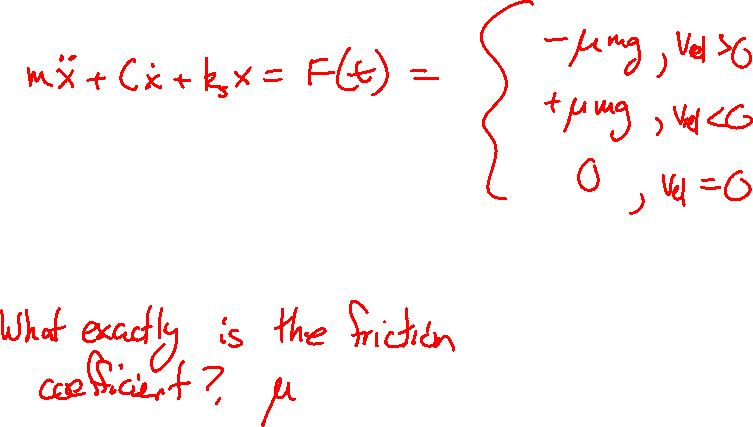 mẍ + Cẋ + kₛx = F(t) = { -μmg, vel > 0
+μmg, vel < 0
0, vel = 0
What exactly is the friction
coefficient? μ